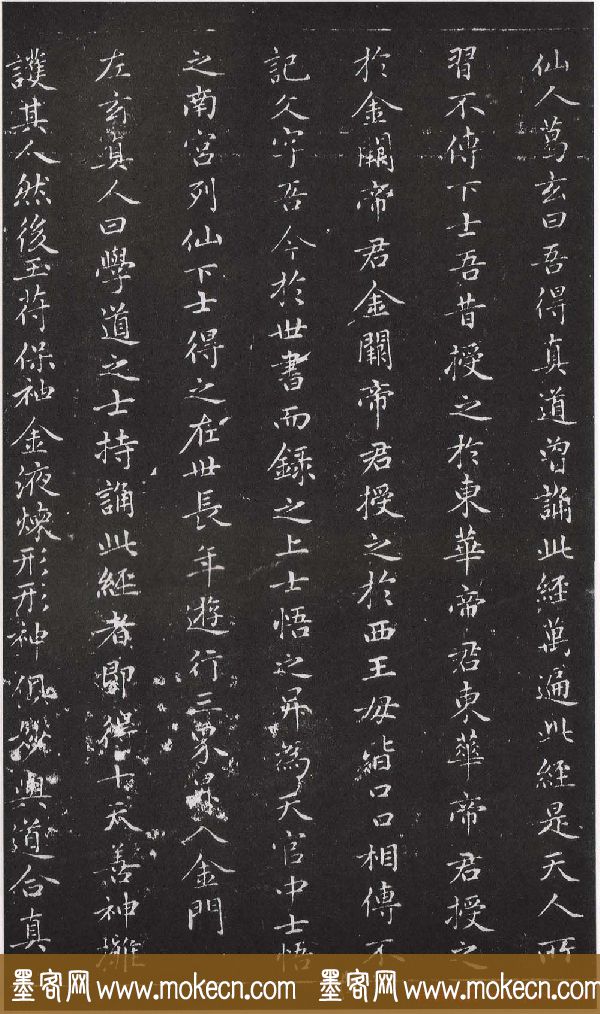 仙人葛玄曰吾得真道曾誦此經萬遍此經是天人所
習不傳下士吾昔授之於東華帝君東華帝君授之
於金闕帝君金闕帝君授之於西王母皆口口相傳不
記文字吾今於世書而錄之上士悟之昇為天官中士悟
之南宮列仙下士得之在世長年遊行三界昇入金門
左玄真人曰學道之士持誦此經者即得十天善神擁
護其人然後玉符保神金液煉形形神俱妙與道合真
墨客网 www.mokecn.com 墨客网 www.mokecn.com